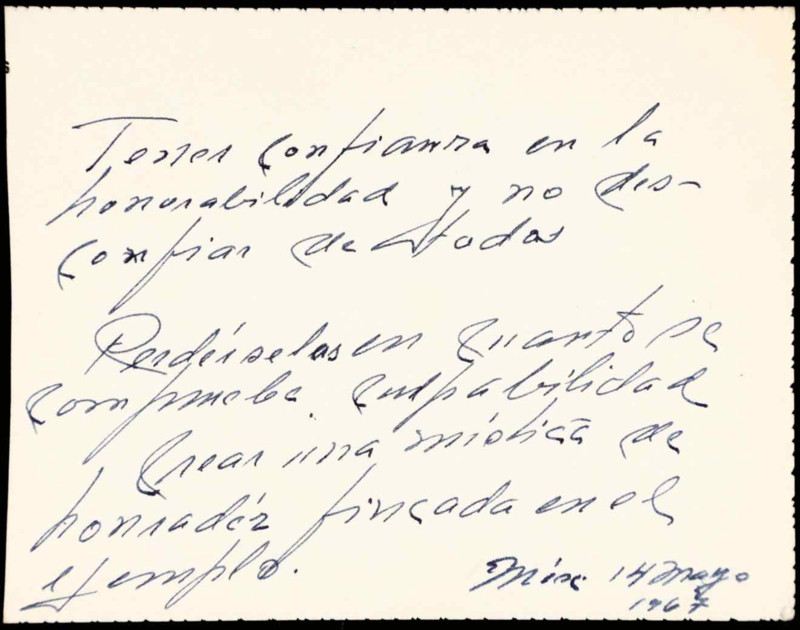 Tener confianza en la
honorabilidad y no des-
confiar de todos
Perdérselas en cuanto se
compruebe culpabilidad
Crear una mística de
honradéz fincada en el
ejemplo.
14 mayo
1967